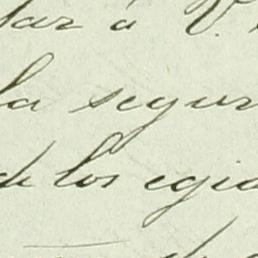 tar á V.
la segur
de los egid